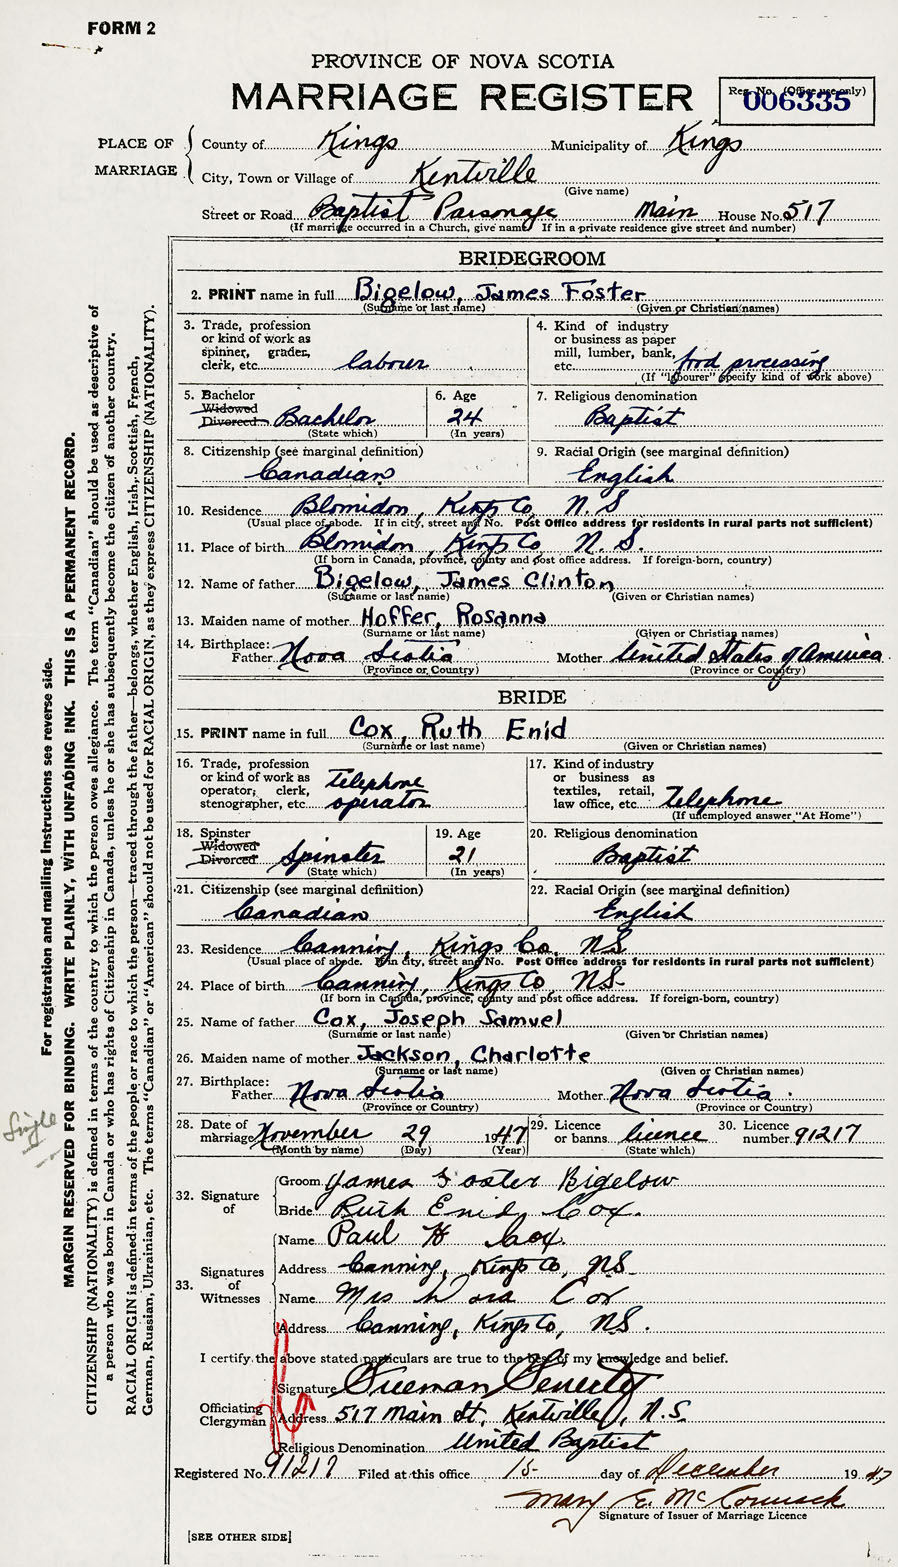 FORM 2
PROVINCE OF NOVA SCOTIA
MARRIAGE REGISTER
Reg. No. (Office use only)
006335
PLACE OF MARRIAGE
County of Kings Municipality of Kings
City, Town or Village of Kentville
(Give name)
Street or Road Baptist Parsonage Main House No. 517
(If marriage occurred in a Church, give name If in a private residence give street and number)
BRIDEGROOM
2. PRINT name in full Bigelow, James Foster
(Surname or last name) (Given or Christian names)
3. Trade, profession
or kind of work as
spinner, grader,
clerk, etc. labour
4. Kind of industry
or business as paper
mill, lumber, bank,
etc. food processing
(If "labourer" specify kind of work above)
5. Bachelor
Widowed
Divorced Bachelor
(State which)
6. Age
24
(In years)
7. Religious denomination
Baptist
8. Citizenship (see marginal definition)
Canadian
9. Racial Origin (see marginal definition)
English
10. Residence Blomidon, Kings Co, N.S
(Usual place of abode. If in city, street and No. Post Office address for residents in rural parts not sufficient)
11. Place of birth Blomidon, Kings Co, N.S.
(If born in Canada, province, county and post office address. If foreign-born, country)
12. Name of father Bigelow, James Clinton
(Surname or last name) (Given or Christian names)
13. Maiden name of mother Hoffer, Rosanna
(Surname or last name) (Given or Christian names)
14. Birthplace:
Father Nova Scotia Mother United States of America
(Province or Country) (Province or Country)
BRIDE
15. PRINT name in full Cox, Ruth Enid
(Surname or last name) (Given or Christian names)
16. Trade, profession
or kind of work as
operator, clerk,
stenographer, etc. telephone operator
17. Kind of industry
or business as
textiles, retail,
law office, etc. telephone
(If unemployed answer "At Home")
18. Spinster
Widowed
Divorced Spinster
(State which)
19. Age
21
(In years)
20. Religious denomination
Baptist
21. Citizenship (see marginal definition)
Canadian
22. Racial Origin (see marginal definition)
English
23. Residence Canning, Kings Co, NS
(Usual place of abode. If in city, street and No. Post Office address for residents in rural parts not sufficient)
24. Place of birth Canning, Kings Co, NS
(If born in Canada, province, county and post office address. If foreign-born, country)
25. Name of father Cox, Joseph Samuel
(Surname or last name) (Given or Christian names)
26. Maiden name of mother Jackson, Charlotte
(Surname or last name) (Given or Christian names)
27. Birthplace:
Father Nova Scotia Mother Nova Scotia.
(Province or Country) (Province or Country)
28. Date of
marriage November 29 1947
(Month by name) (Day) (Year)
29. Licence
or banns licence
(State which)
30. Licence
number 91217
32. Signature
of
Groom James Foster Bigelow
Bride Ruth Enid Cox.
33. Signatures
of
Witnesses
Name Paul H Cox.
Address Canning, Kings Co, NS
Name Mrs Dora Cox
Address Canning, Kings Co, NS.
I certify the above stated particulars are true to the best of my knowledge and belief.
Officiating
Clergyman
Signature Freeman Fenerty
Address 517 Main St, Kentville, N.S.
Religious Denomination United Baptist
Registered No. 91217 Filed at this office 15 day of December 1947
Mary E. McCormack
Signature of Issuer of Marriage Licence
[SEE OTHER SIDE]
For registration and mailing instructions see reverse side.
MARGIN RESERVED FOR BINDING. WRITE PLAINLY, WITH UNFADING INK. THIS IS A PERMANENT RECORD.
CITIZENSHIP (NATIONALITY) is defined in terms of the country to which the person owes allegiance. The term "Canadian" should be used as descriptive of
a person who was born in Canada or who has rights of Citizenship in Canada, unless he or she has subsequently become the citizen of another country.
RACIAL ORIGIN is defined in terms of the people or race to which the person—traced through the father—belongs, whether English, Irish, Scottish, French,
German, Russian, Ukrainian, etc. The terms "Canadian" or "American" should not be used for RACIAL ORIGIN, as they express CITIZENSHIP (NATIONALITY).
Single